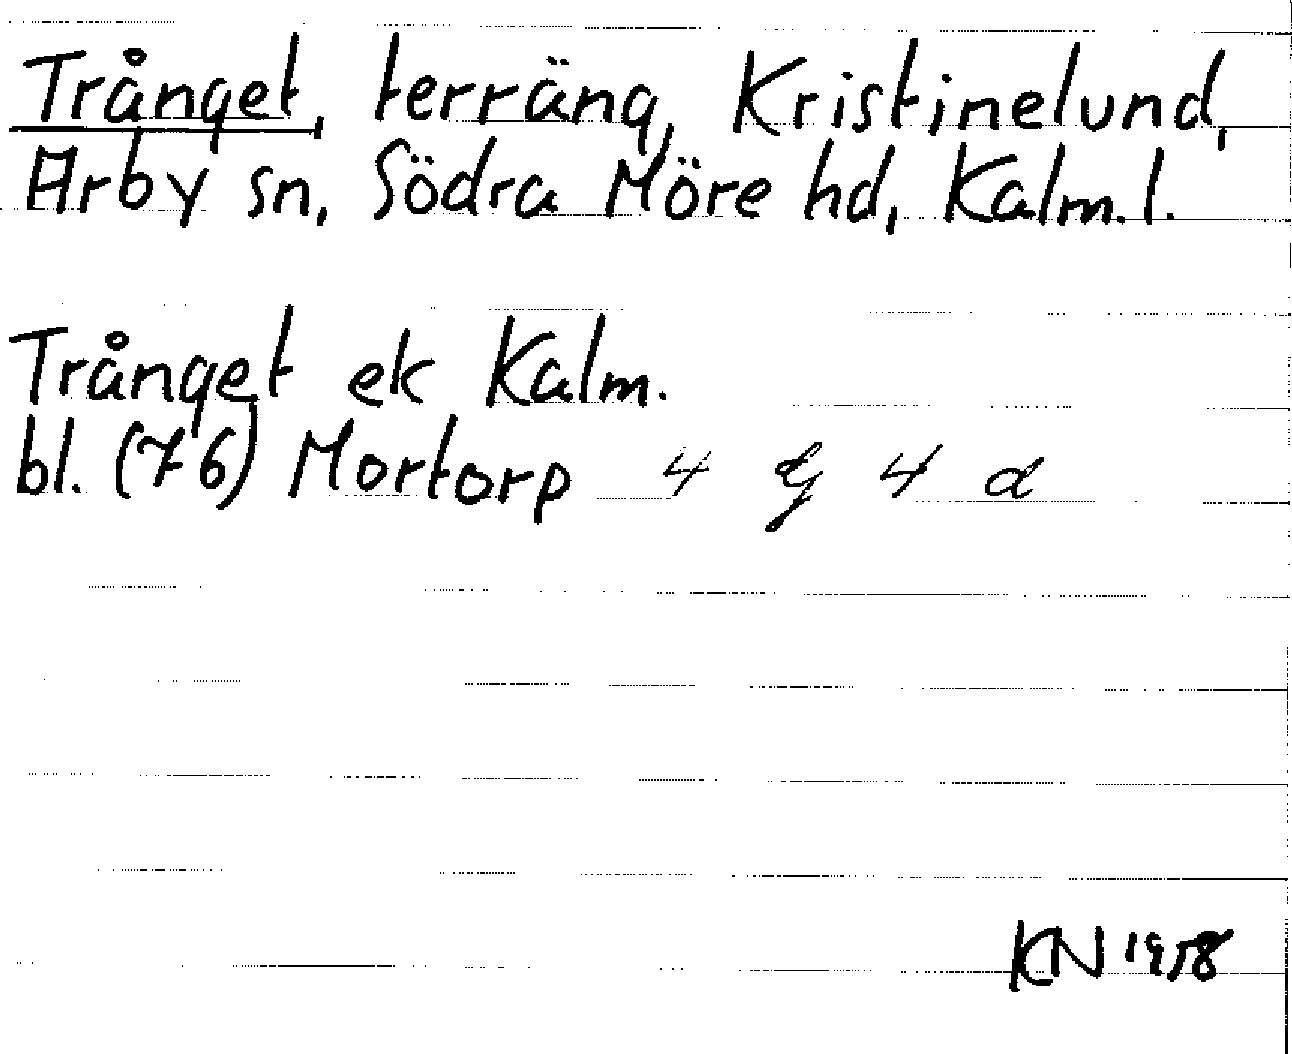 Trånget, terräng, Kristinelund,
Arby sn, Södra Möre hd, Kalm. l.
Trånget ek Kalm.
bl. (76) Mortorp 4 G 4 d
KN 1958